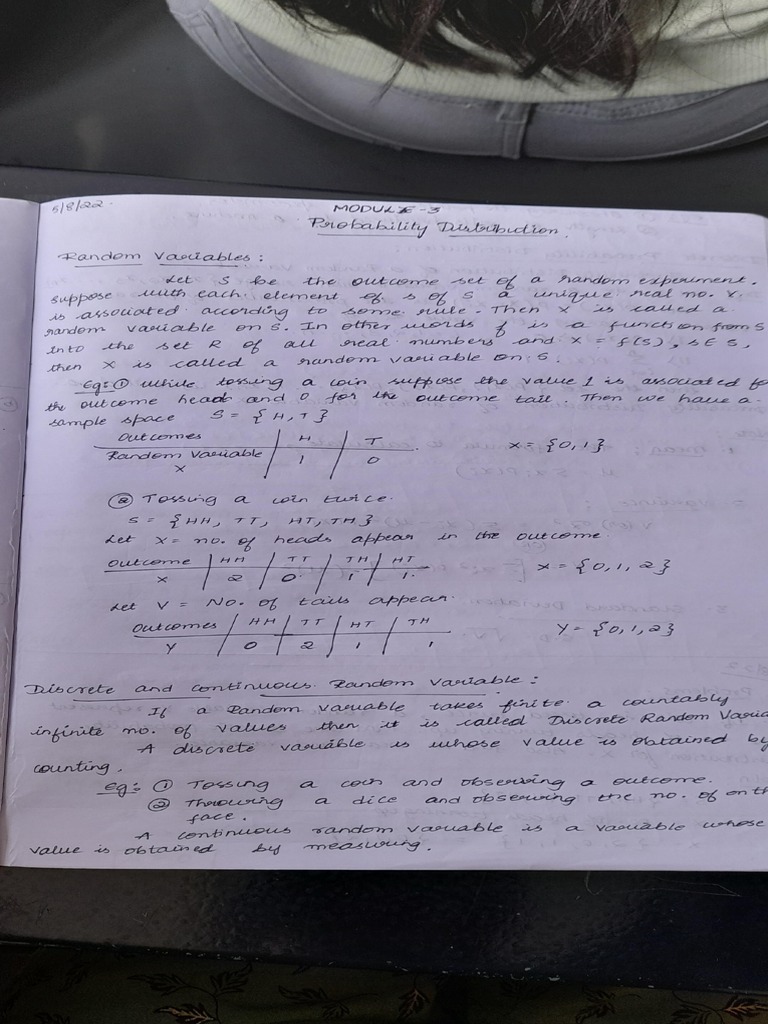 5/8/22.
MODULE-3
Probability Distribution.
Random Variables:
Let S be the outcome set of a random experiment.
suppose with each element of s of S a unique real no. x
is associated according to some rule. Then x is called a
random variable on S. In other words f is a function from S
into the set R of all real numbers and x = f(s), s∈S,
then x is called a random variable on S.
Eg:- ① while tossing a coin suppose the value 1 is associated fo
the outcome head and 0 for the outcome tail. Then we have a
sample space S = {H, T}
Outcomes | H | T
Random Variable X | 1 | 0 x = {0,1}
② Tossing a coin twice.
S = {HH, TT, HT, TH}
Let x = no. of heads appear in the outcome
outcome | HH | TT | TH | HT
x | 2 | 0 | 1 | 1 x = {0,1,2}
Let V = No. of tails appear.
Outcomes | HH | TT | HT | TH
Y | 0 | 2 | 1 | 1 Y = {0,1,2}
Discrete and continuous Random Variable:
If a Random Variable takes finite a countably
infinite no. of values then it is called Discrete Random Varia
A discrete variable is whose value is obtained by
counting.
eg:- ① Tossing a coin and observing a outcome.
② Throwing a dice and observing the no. of on th
face.
A continuous random variable is a variable whose
value is obtained by measuring.